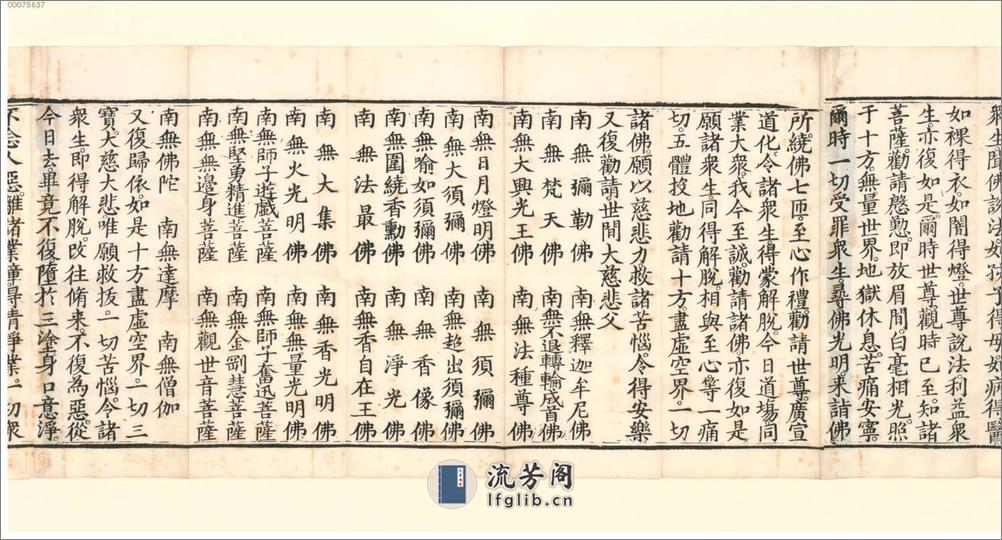 00075637
衆生聞佛說法如孩子得母如病得醫
如裸得衣如闇得燈世尊說法利益衆
生亦復如是爾時世尊觀時已至知諸
菩薩勸請慇懃即放眉間白毫相光照
于十方無量世界地獄休息苦痛安寧
爾時一切受罪衆生尋佛光明來請佛
所繞佛七匝至心作禮勸請世尊廣宣
道化令諸衆生得蒙解脫今日道場同
業大衆我今至誠勸請諸佛亦復如是
願諸衆生同得解脫相與至心等一痛
切五體投地勸請十方盡虛空界一切
諸佛願以慈悲力救諸苦惱令得安樂
又復勸請世間大慈悲父
南無彌勒佛 南無釋迦牟尼佛
南無梵天佛 南無不退轉輪成首佛
南無大興光王佛 南無法種尊佛
南無日月燈明佛 南無須彌佛
南無大須彌佛 南無超出須彌佛
南無喻如須彌佛 南無香像佛
南無圍繞香勳佛 南無淨光佛
南無法最佛 南無香自在王佛
南無大集佛 南無香光明佛
南無火光明佛 南無無量光明佛
南無師子遊戲菩薩 南無師子奮迅菩薩
南無堅勇精進菩薩 南無金剛慧菩薩
南無無邊身菩薩 南無觀世音菩薩
南無佛陀 南無達摩 南無僧伽
又復歸依如是十方盡虛空界一切三
寶大慈大悲唯願救拔一切苦惱今諸
衆生即得解脫改往脩來不復為惡從
今日去畢竟不復墮於三塗身口意淨
不念人惡離諸業障得清淨業一切衆
流芳阁
lfglib.cn